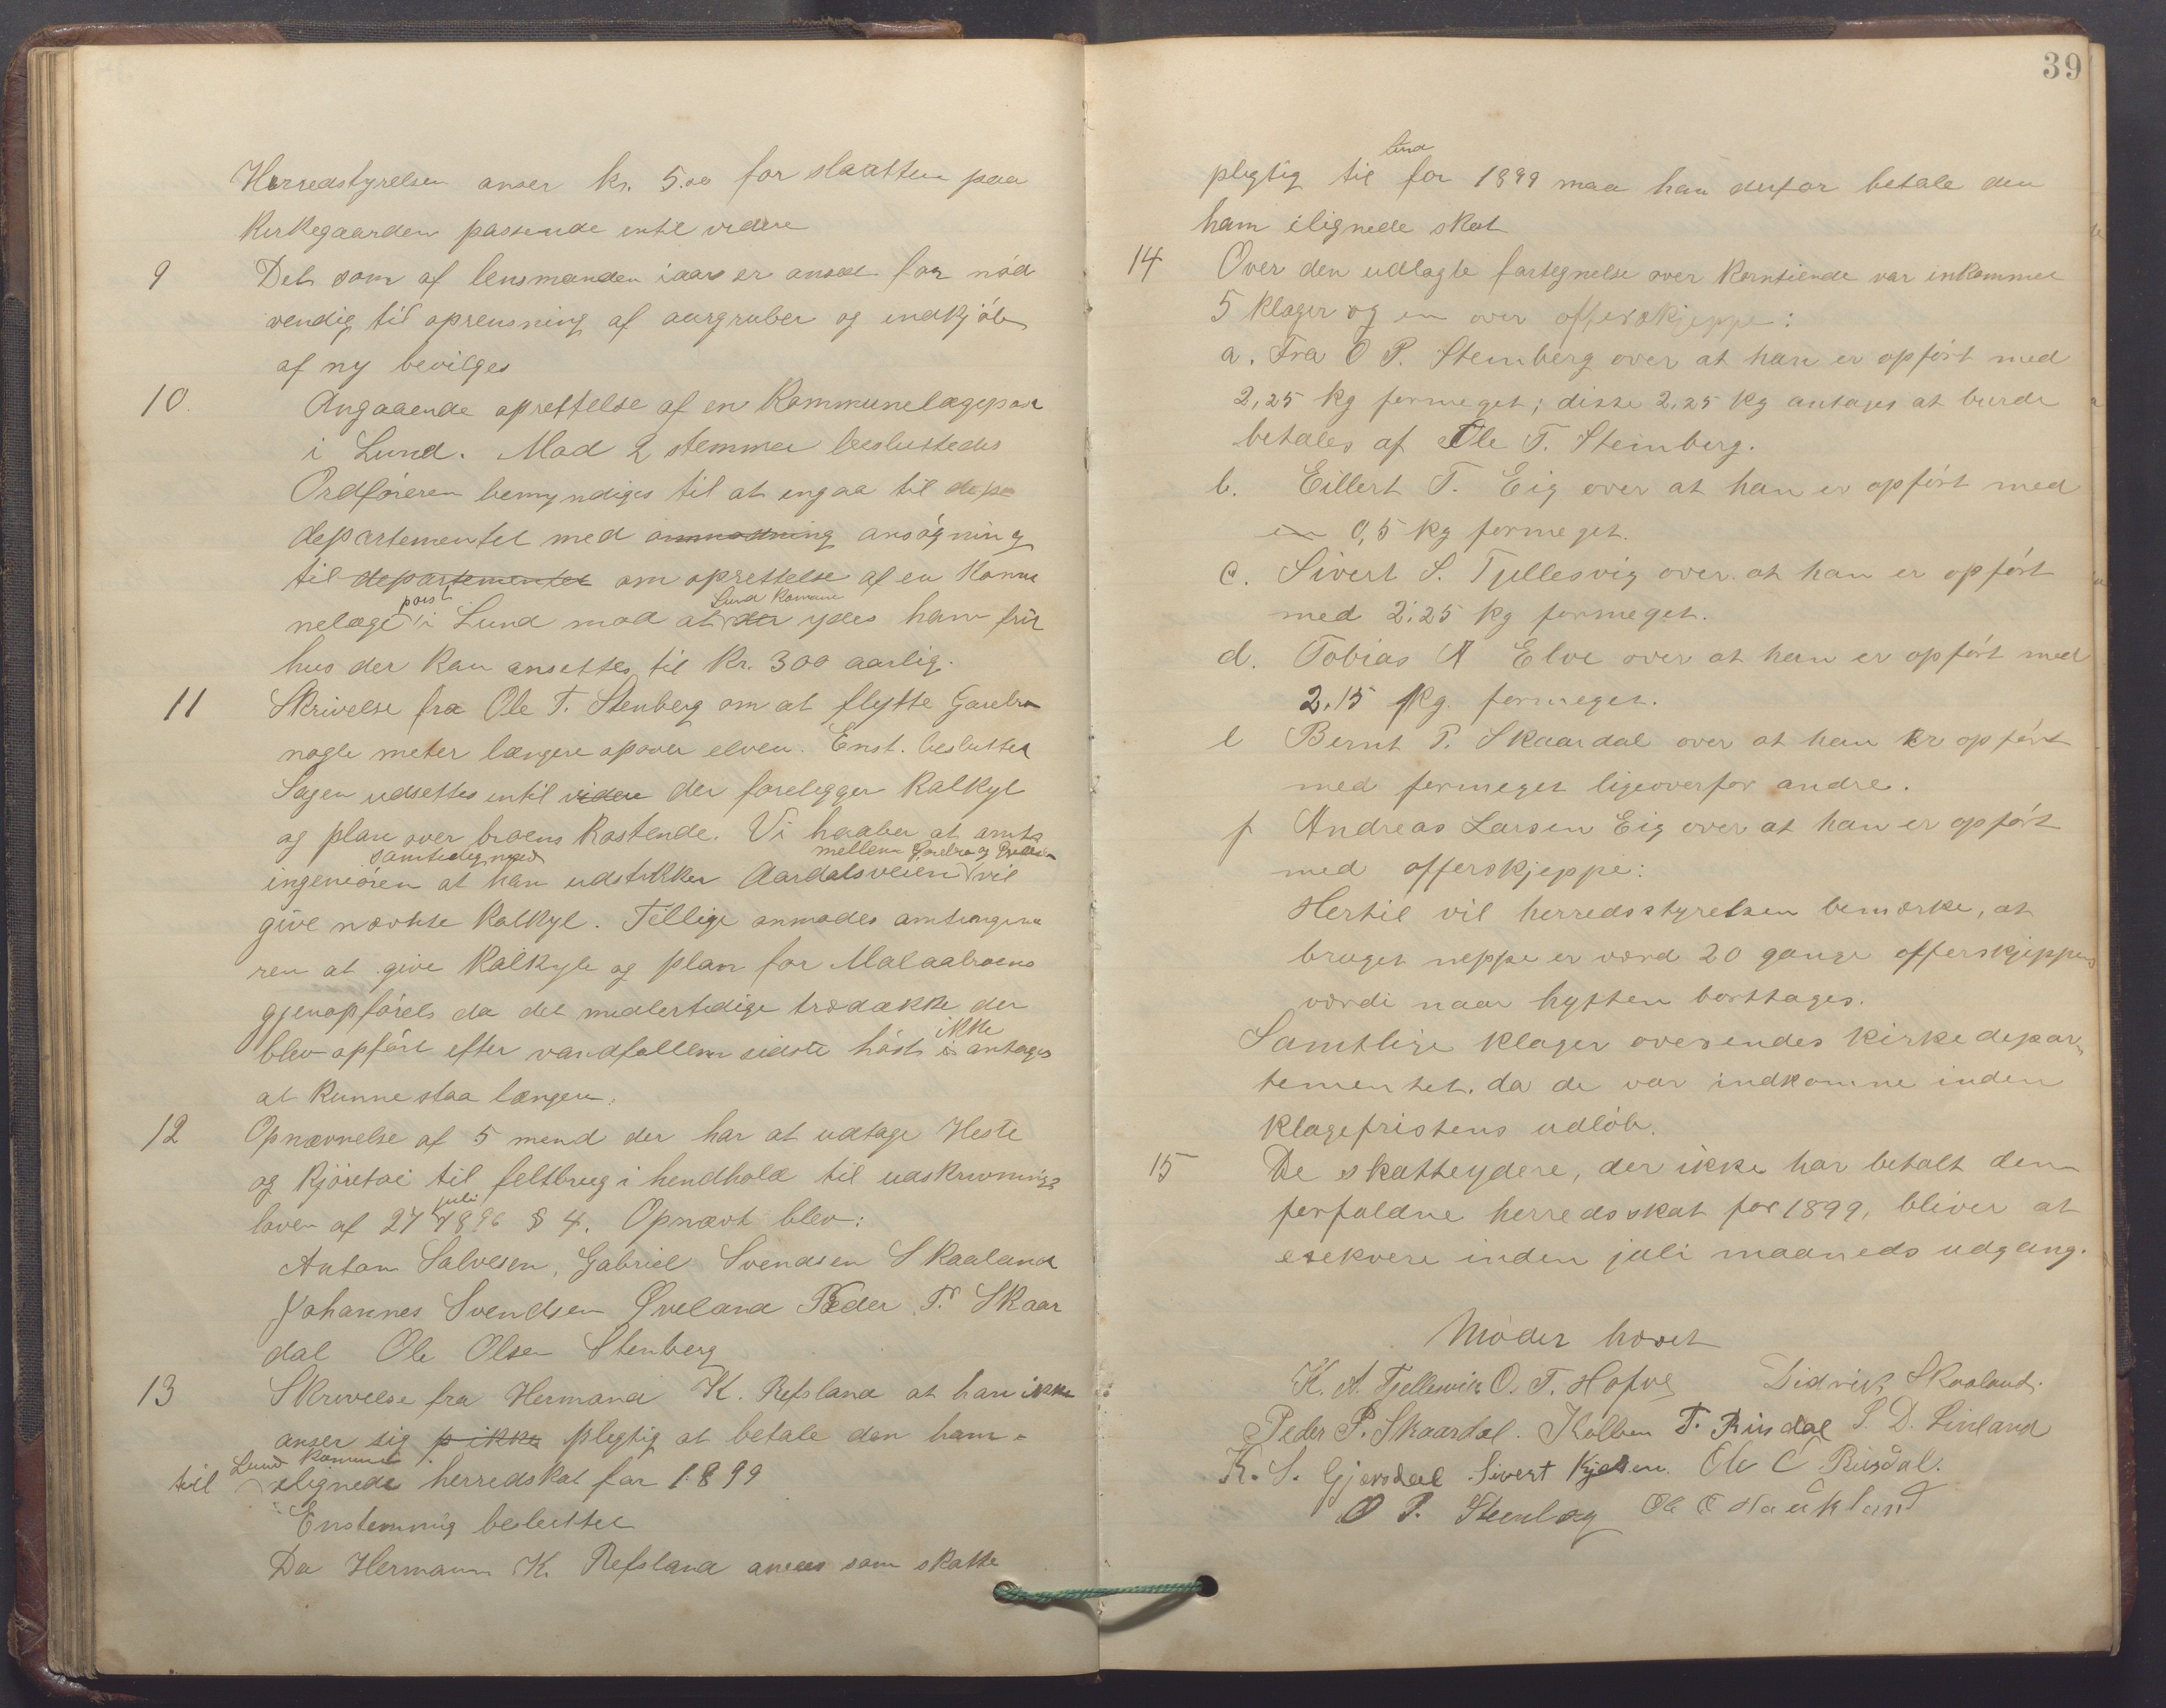 Herredstyrelsen anser kr. 5.00 for slaatten paa
kirkegaarden passende intil videre
9 Det som af lensmanden iaar er anseet for nød
vendig til oprensning af aurgruber og indkjøb
af ny bevilges
10. Angaaende oprettelse af en kommunelægepost
i Lund. Mod 2 stemmer besluttedes
Ordføreren bemyndiges til at engaa til depe
departementet med anmodning ansøgning
til departementet om oprettelse af en Komu
post Lund Komune
nelæge i Lund mod at der ydes ham frit
hus der kan ansettes til kr. 300 aarlig.
11 Skrivelse fra Ole T. Stenberg om at flytte Garebro
nogle meter længere opover elven. Enst. besluttet
Sagen udsettes intil videre der forelegger kalkyl
og plan over broens kostende. Vi haaber at amts
samtidig med mellem Garebro og
ingeniøren at han udstikker Aardalsveien vil
give nævnte kalkyl. Tillige anmodes amtsingeniø
ren at give kalkyle og plan for Malaabroens
gjenopførels da det medlertidige trædække der
ikke
blev opført efter vandfallem sidste høst i antages
at kunne staa længere.
12 Opnævnelse af 5 mend der har at udtage Heste
og kjøretøi til feltbrug i hendhold til udskrivnings
juli
loven af 27 1896 § 4. Opnævt blev:
Anton Salvesen, Gabriel Svendsen Skaaland
Johannes Svendsen Øveland Peder P. Skaar
dal Ole Olsen Stenberg
13 Skrivelse fra Hermand K. Refsland at han ikke
anser sig p ikke plegtig at betale den ham
Lund Komune
til ilignede herredskat for 1899
Enstemmig besluttet
Da Hermann K. Refsland ansees som skatte
39
Lund
plegtig til for 1899 maa han derfor betale den
ham ilignede skat
14 Over den udlagte fortegnelse over korntiende var inkommet
5 klager og en over offerskjeppe:
a. Fra O P. Stemberg over at han er opført med
2,25 kg formeget; disse 2,25 kg antages at burde
betales af Ole T. Steinberg.
b. Eillert T. Eig over at han er opført med
en 0,5 kg formeget.
c. Sivert S. Tjellesvig over at han er opført
med 2.25 kg formeget.
d. Tobias A Elve over at han er opført med
2.15 kg. formeget.
e Bernt P. Skaardal over at han er opført
med formeget ligeoverfor andre.
f Andreas Larsen Eig over at han er opført
med offerskjeppe:
Hertil vil herredsstyrelsen bemærke, at
bruget neppe er værd 20 gange offerskjeppens
værdi naar hytten borttages.
Samtlige klager oversendes kirkedepar
tementet. da de var indkomne inden
klagefristens udløb.
15 De skatteydere, der ikke har betalt den
forfaldne herredsskat for 1899, bliver at
esekvere inden juli maaneds udgang.
Mødet hævet
K. A. Tjellesvik O. T. Hofve Didrik Skaaland.
Peder P. Skaardal. Kolben T. Rusdal S. D. Linland
K. S. Gjersdal Sivert Kjelsen. Ole C Rusdal.
O P. Stenberg Ole O Haukland